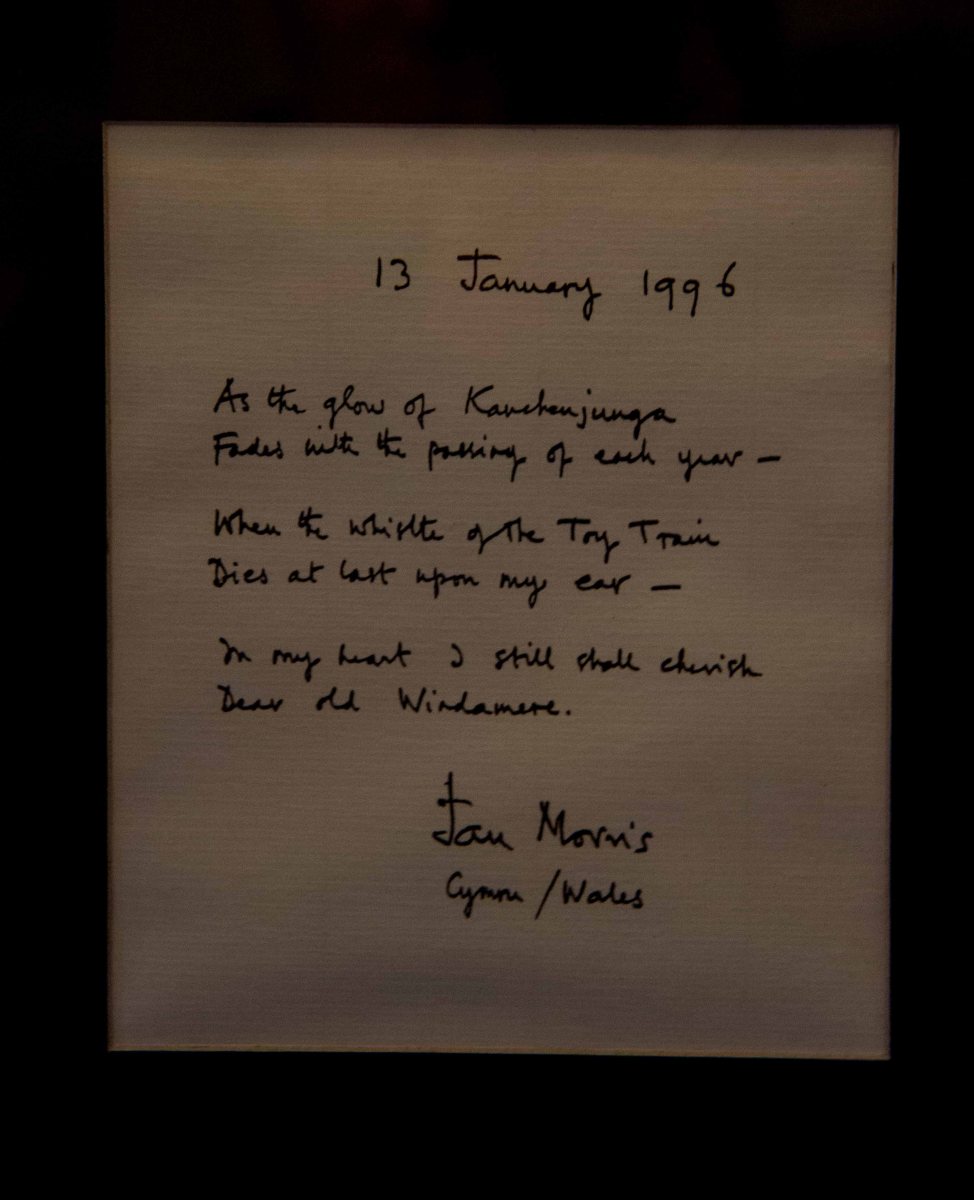 13 January 1996
As the glow of Kanchenjunga
Fades with the passing of each year —
When the whistle of the Toy Train
Dies at last upon my ear —
In my heart I still shall cherish
Dear old Windamere.
Jan Morris
Cymru / Wales